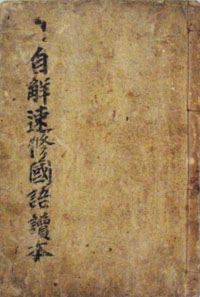 自解速修國語讀本